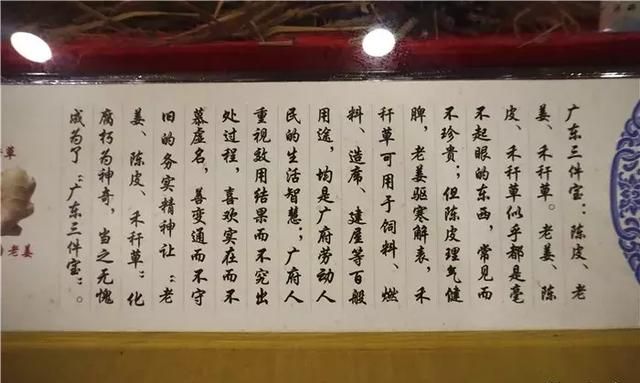 广东三件宝：陈皮、老
姜、禾秆草。老姜、陈
皮、禾秆草似乎都是毫
不起眼的东西，常见而
不珍贵；但陈皮理气健
脾，老姜驱寒解表，禾
秆草可用于饲料、燃
料、造席、建屋等百般
用途，均是广府劳动人
民的生活智慧；广府人
重视致用结果而不究出
处过程，喜欢实在而不
慕虚名，善变通而不守
旧的务实精神让“老
姜、陈皮、禾秆草”化
腐朽为神奇，当之无愧
成为了“广东三件宝”。
草
) 老姜